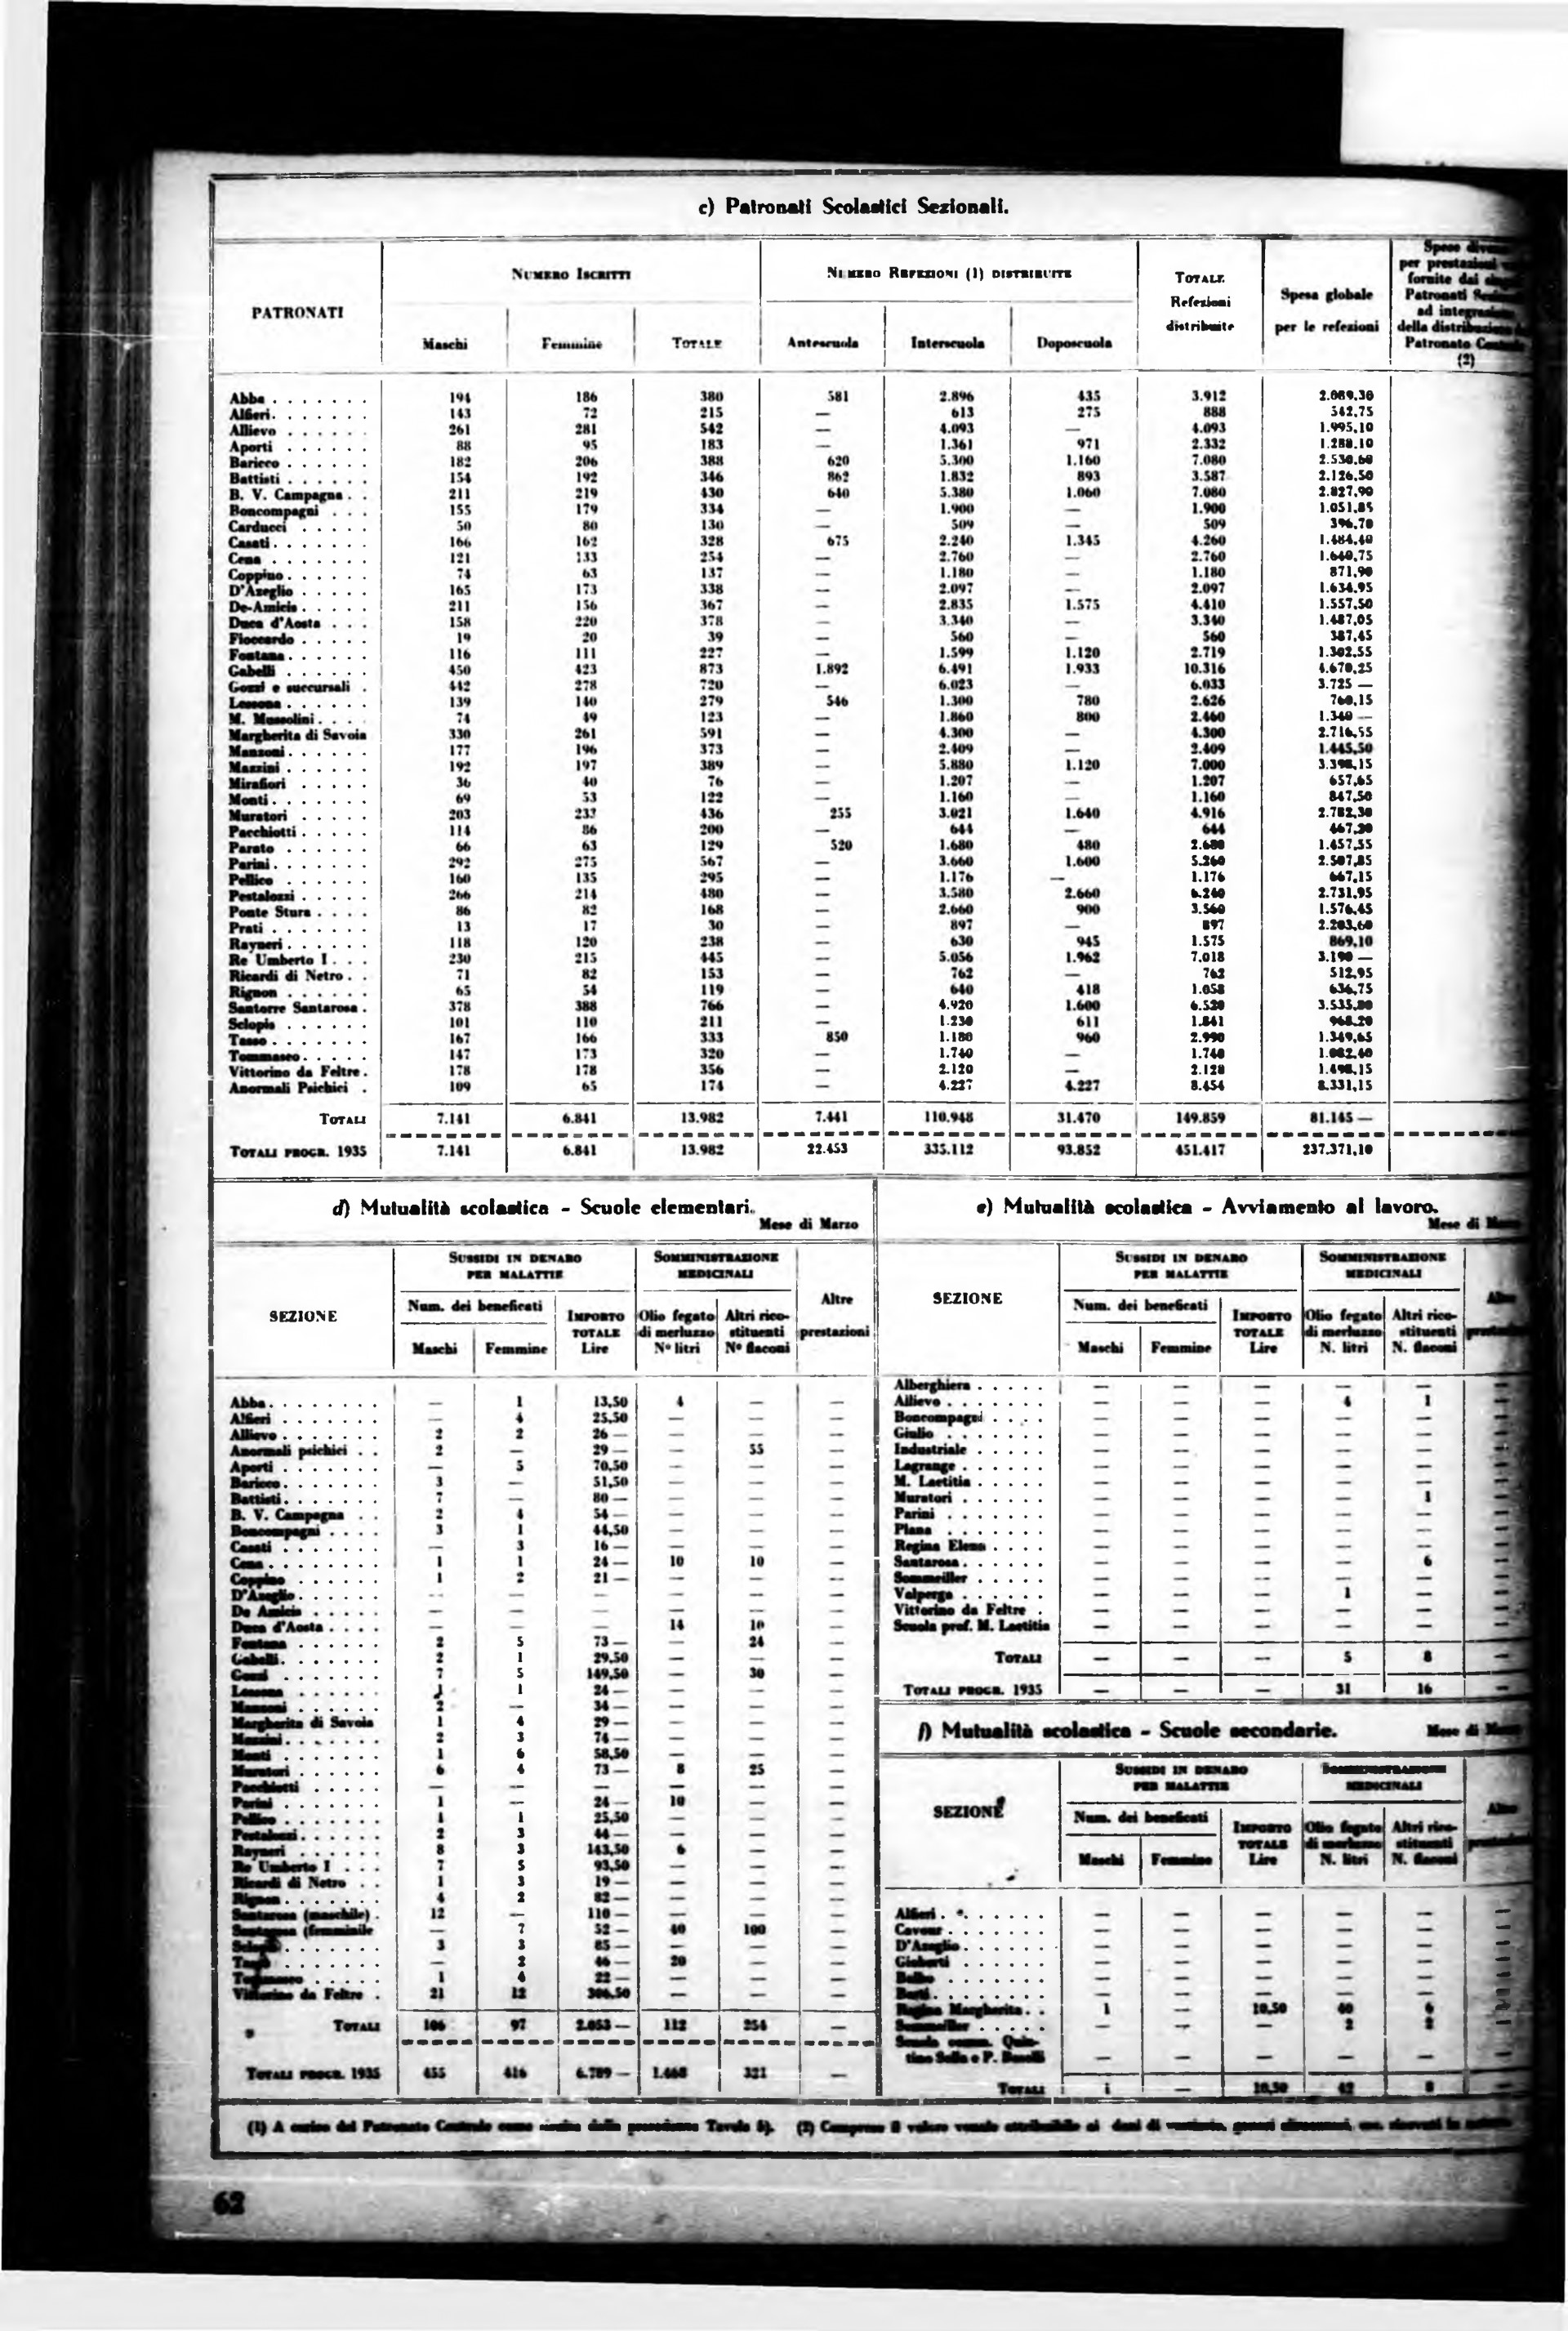 c) Patronati Scolastici Sezionali.
PATRONATI
NUMERO ISCRITTI
NUMERO REFEZIONI (1) DISTRIBUITE
TOTALE
Refezioni
distribuite
Spesa globale
per le refezioni
Spese
per prestazioni
fornite dai
Patronati
ad
della
Patronato
(2)
Maschi Femmine TOTALE Antescuola Interscuola Doposcuola
Abba . . . . . . . 194 186 380 581 2.896 435 3.912 2.089,30
Alfieri. . . . . . . 143 72 215 — 613 275 888 542,75
Allievo . . . . . . 261 281 542 — 4.093 — 4.093 1.995,10
Aporti . . . . . . 88 95 183 — 1.361 971 2.332 1.288,10
Baricco . . . . . . 182 206 388 620 5.300 1.160 7.080 2.530,60
Battisti . . . . . . 154 192 346 862 1.832 893 3.587 2.126,50
B. V. Campagna . . 211 219 430 640 5.380 1.060 7.080 2.827,90
Boncompagni . . . 155 179 334 — 1.900 — 1.900 1.051,85
Carducci . . . . . 50 80 130 — 509 — 509 396,70
Casati . . . . . . . 166 162 328 675 2.240 1.345 4.260 1.484,40
Cena . . . . . . . 121 133 254 — 2.760 — 2.760 1.640,75
Coppino . . . . . . 74 63 137 — 1.180 — 1.180 871,90
D'Azeglio . . . . . 165 173 338 — 2.097 — 2.097 1.634,95
De-Amicis . . . . . 211 156 367 — 2.835 1.575 4.410 1.557,50
Duca d'Aosta . . . 158 220 378 — 3.340 — 3.340 1.487,05
Fioccardo . . . . . 19 20 39 — 560 — 560 387,45
Fontana . . . . . . 116 111 227 — 1.599 1.120 2.719 1.302,55
Gabelli . . . . . . 450 423 873 1.892 6.491 1.933 10.316 4.670,25
Gozzi e succursali . 442 278 720 — 6.023 — 6.033 3.725 —
Lessona . . . . . . 139 140 279 546 1.300 780 2.626 760,15
M. Mussolini . . . . 74 49 123 — 1.860 800 2.460 1.340 —
Margherita di Savoia 330 261 591 — 4.300 — 4.300 2.716,55
Manzoni . . . . . . 177 196 373 — 2.409 — 2.409 1.445,50
Mazzini . . . . . . 192 197 389 — 5.880 1.120 7.000 3.398,15
Mirafiori . . . . . 36 40 76 — 1.207 — 1.207 657,65
Monti . . . . . . . 69 53 122 — 1.160 — 1.160 847,50
Muratori . . . . . 203 233 436 255 3.021 1.640 4.916 2.782,30
Pacchiotti . . . . . 114 86 200 — 644 — 644 467,20
Parato . . . . . . 66 63 129 520 1.680 480 2.680 1.457,55
Parini . . . . . . . 292 275 567 — 3.660 1.600 5.260 2.507,85
Pellico . . . . . . 160 135 295 — 1.176 — 1.176 667,15
Pestalozzi . . . . . 266 214 480 — 3.580 2.660 6.240 2.731,95
Ponte Stura . . . . 86 82 168 — 2.660 900 3.560 1.576,45
Prati . . . . . . . 13 17 30 — 897 — 897 2.203,60
Rayneri . . . . . . 118 120 238 — 630 945 1.575 869,10
Re Umberto I . . . 230 215 445 — 5.056 1.962 7.018 3.190 —
Ricardi di Netro . . 71 82 153 — 762 — 762 512,95
Rignon . . . . . . 65 54 119 — 640 418 1.058 636,75
Santorre Santarosa . 378 388 766 — 4.920 1.600 6.520 3.535,80
Sclopis . . . . . . 101 110 211 — 1.230 611 1.841 968,20
Tasso . . . . . . . 167 166 333 850 1.180 960 2.990 1.349,65
Tommaseo . . . . . 147 173 320 — 1.740 — 1.740 1.082,40
Vittorino da Feltre . 178 178 356 — 2.120 — 2.120 1.498,15
Anormali Psichici . 109 65 174 — 4.227 4.227 8.454 8.331,15
TOTALI 7.141 6.841 13.982 7.441 110.948 31.470 149.859 81.145 —
TOTALI PROGR. 1935 7.141 6.841 13.982 22.453 335.112 93.852 451.417 237.371,10
d) Mutualità scolastica - Scuole elementari.
Mese di Marzo
SEZIONE
SUSSIDI IN DENARO
PER MALATTIE
SOMMINISTRAZIONE
MEDICINALI
Altre
prestazioni
Num. dei beneficati
IMPORTO
TOTALE
Lire
Olio fegato
di merluzzo
N° litri
Altri rico-
stituenti
N° flaconi
Maschi Femmine
Abba . . . . . . . . — 1 13,50 4 — —
Alfieri . . . . . . . — 4 25,50 — — —
Allievo . . . . . . . 2 2 26 — — — —
Anormali psichici . . 2 — 29 — — 55 —
Aporti . . . . . . . — 5 70,50 — — —
Baricco . . . . . . . 3 — 51,50 — — —
Battisti . . . . . . . 7 — 80 — — — —
B. V. Campagna . . 2 4 54 — — — —
Boncompagni . . . . 3 1 44,50 — — —
Casati . . . . . . . — 3 16 — — — —
Cena . . . . . . . . 1 1 24 — 10 10 —
Coppino . . . . . . 1 2 21 — — — —
D'Azeglio . . . . . . — — — — — —
De Amicis . . . . . — — — — — —
Duca d'Aosta . . . . — — — 14 10 —
Fontana . . . . . . 2 5 73 — — 24 —
Gabelli . . . . . . . 2 1 29,50 — — —
Gozzi . . . . . . . 7 5 149,50 — 30 —
Lessona . . . . . . 1 1 24 — — — —
Manzoni . . . . . . 2 — 34 — — — —
Margherita di Savoia 1 4 29 — — — —
Mazzini . . . . . . . 2 3 74 — — — —
Monti . . . . . . . 1 6 58,50 — — —
Muratori . . . . . . 6 4 73 — 8 25 —
Pacchiotti . . . . . — — — — — —
Parini . . . . . . . 1 — 24 — 10 — —
Pellico . . . . . . . 1 1 25,50 — — —
Pestalozzi . . . . . . 2 3 44 — — — —
Rayneri . . . . . . 8 3 143,50 6 — —
Re Umberto I . . . 7 5 93,50 — — —
Ricardi di Netro . . 1 3 19 — — — —
Rignon . . . . . . . 4 2 82 — — — —
Santarosa (maschile) . 12 — 110 — — — —
Santarosa (femminile — 7 52 — 40 100 —
Sclopis . . . . . . . 3 3 85 — — — —
Tasso . . . . . . . — 2 46 — 20 — —
Tommaseo . . . . . 1 4 22 — — — —
Vittorino da Feltre . 21 12 306,50 — — —
TOTALI 106 97 2.053 — 112 254 —
TOTALI PROGR. 1935 455 416 6.789 — 1.468 321 —
e) Mutualità scolastica - Avviamento al lavoro.
Mese di
SEZIONE
SUSSIDI IN DENARO
PER MALATTIE
SOMMINISTRAZIONE
MEDICINALI
Num. dei beneficati
IMPORTO
TOTALE
Lire
Olio fegato
di merluzzo
N. litri
Altri rico-
stituenti
N. flaconi
Maschi Femmine
Alberghiera . . . . . — — — — — —
Allievo . . . . . . . — — — 4 1 —
Boncompagni . . . . — — — — — —
Giulio . . . . . . . — — — — — —
Industriale . . . . . — — — — — —
Lagrange . . . . . . — — — — — —
M. Laetitia . . . . . — — — — — —
Muratori . . . . . . — — — — 1 —
Parini . . . . . . . — — — — — —
Plana . . . . . . . — — — — — —
Regina Elena . . . . — — — — — —
Santarosa . . . . . . — — — — 6 —
Sommeiller . . . . . — — — — — —
Valperga . . . . . . — — — 1 — —
Vittorino da Feltre . — — — — — —
Scuola prof. M. Laetitia — — — — — —
TOTALI — — — 5 8 —
TOTALI PROGR. 1935 — — — 31 16 —
f) Mutualità scolastica - Scuole secondarie.
Mese di
SEZIONE
SUSSIDI IN DENARO
PER MALATTIE
SOMMINISTRAZIONE
MEDICINALI
Num. dei beneficati
IMPORTO
TOTALE
Lire
Olio fegato
di merluzzo
N. litri
Altri rico-
stituenti
N. flaconi
Maschi Femmine
Alfieri . . . . . . . — — — — — —
Cavour . . . . . . . — — — — — —
D'Azeglio . . . . . . — — — — — —
Gioberti . . . . . . — — — — — —
Balbo . . . . . . . — — — — — —
Berti . . . . . . . . — — — — — —
Regina Margherita . . 1 — 10,50 40 6
Sommeiller . . . . . — — — 2 2
Scuola comm. Quin-
tino Sella e P. Boselli — — — — — —
TOTALI 1 — 10,50 42 8 —
(1) A carico del Patronato Centrale come risulta dalla precedente Tavola b). (2) Compreso il valore venale attribuibile ai doni di vestiario, generi alimentari, ecc. ricevuti in
62